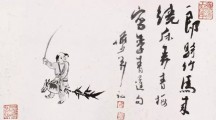 郎騎竹馬來
繞床弄青梅
寫李青蓮句